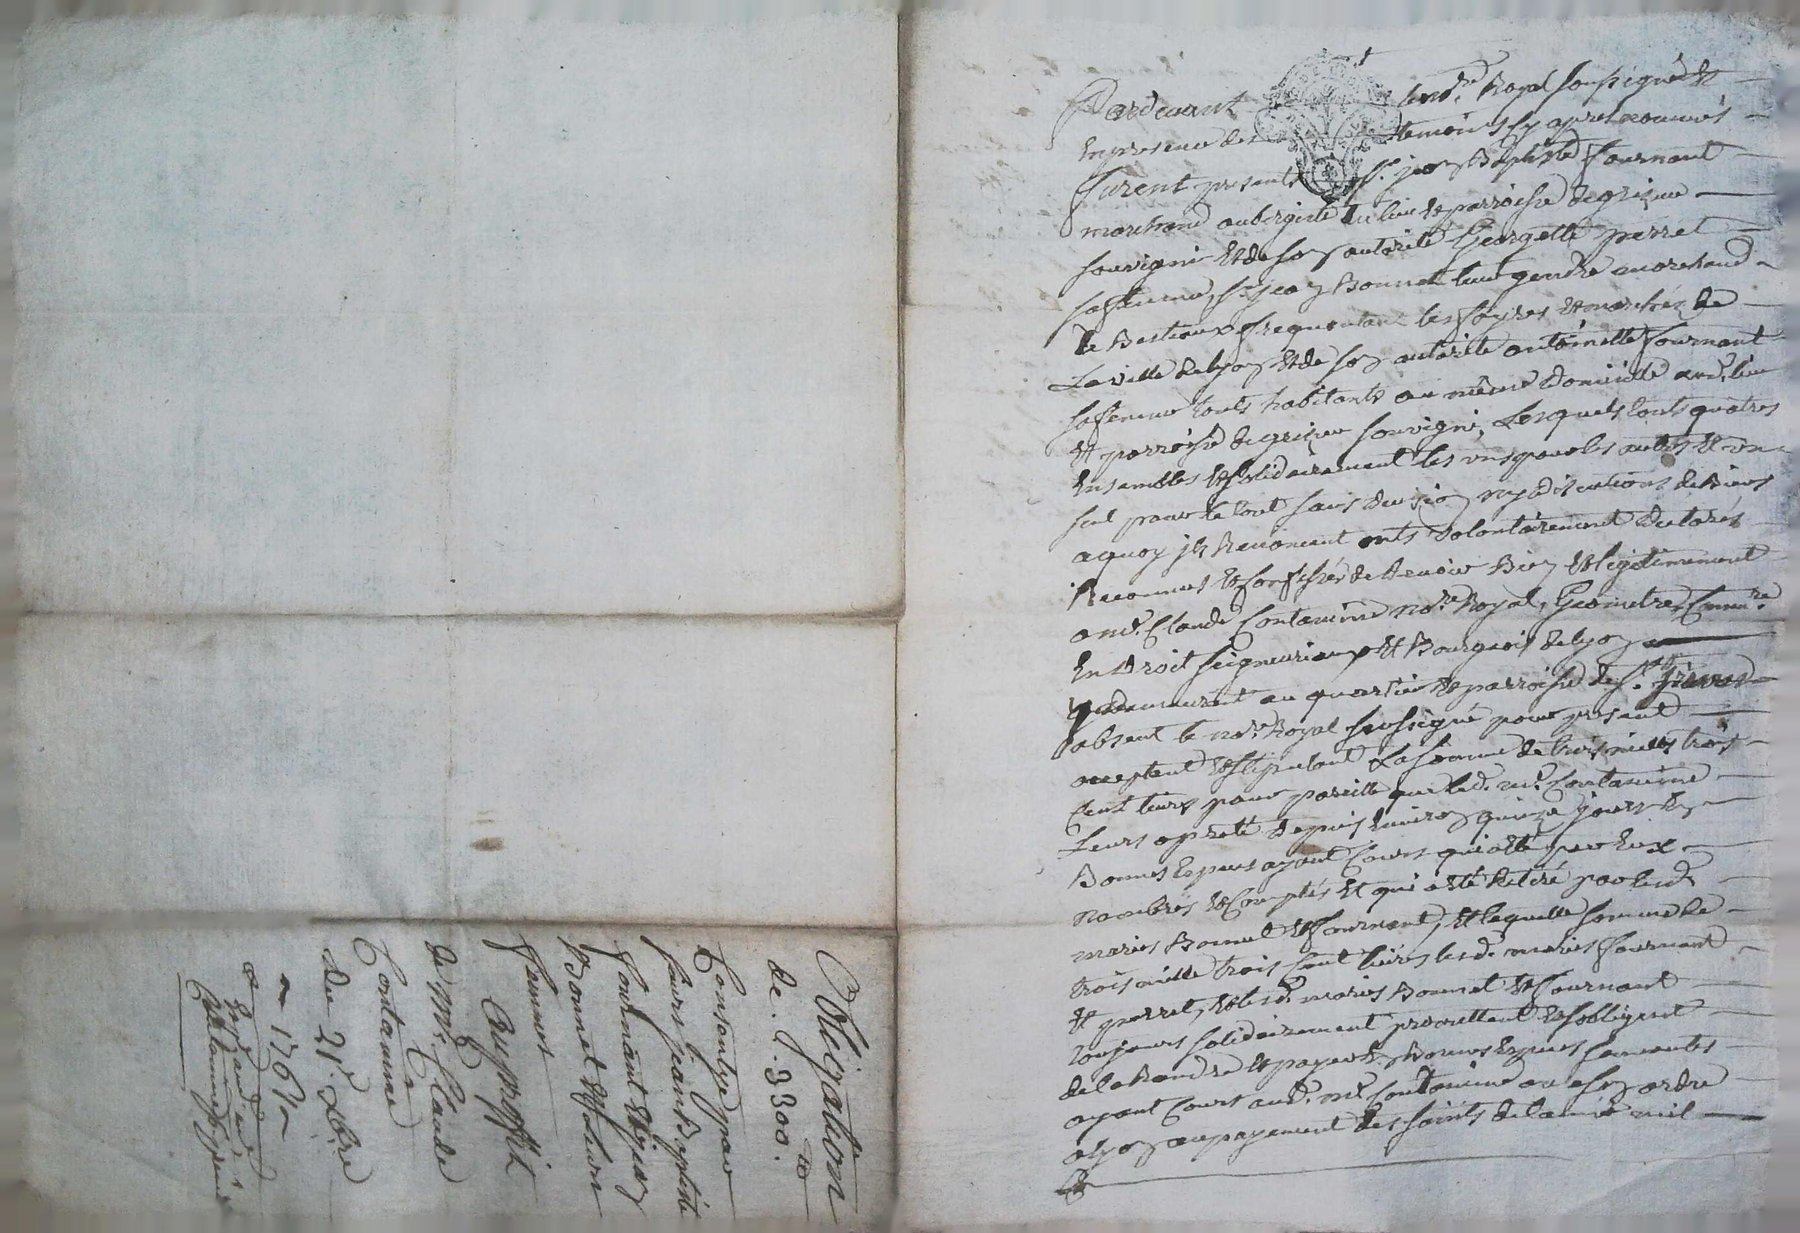 Pardevant le no.re Royal soussigné Et
En presence des temoins cy apres nommés
furent presents s.r jean Baptiste fournant
marchand aubergiste du lieu et parroisse de grizieu
souvigni Et de son autorité Georgette perret
sa femme, s.r jean Bonnet leur gendre marchand
de Bestiaux frequentant les foyres Et marchés de
La ville de lyon Et de son autorité antoinette fournant
sa femme touts habitants au même Domicille aud. lieu
Et parroisse de grizieu souvigni, Lesquels touts quatres
Ensembles Et solidairement les uns pour les autres Et un
seul pour le tout sans division ny discutions de Biens
a quoy ils Renoncent onts volontairement declarés
Reconnus Et confessés de devoir Bien Et legitimement
a m.e Claude Contamine no.re Royal, Geometre, Comm.re
En Droit seigneuriaux Et Bourgeois de lyon
y demeurant au quartier Et parroisse de s.t
absent le no.re Royal sousigné pour present
acceptant Et stipulant La somme de trois milles trois
Cent livres pour pareille que led. m.e Contamine
Leurs a preté depuis Environ quinze jours En
Bonnes Especes ayant Cours qui a été par Eux
nombrés Et Comptés Et qui a été Retiré par lesd.
mariés Bonnet Et fournant, Et laquelle somme de
trois mille trois Cent livres lesd. mariés fournant
Et perret, Et lesd. mariés Bonnet Et fournant
toujours solidairement promettent Et s'obligent
de la Rendre Et payer En Bonnes Especes sonnantes
ayant Cours aud. m.e Contamine ou a son ordre
a lyon au payement des saints de l'année mil
Obligation
de. L. 3300.
Consentye par
sieurs jean Baptiste
fournant Et jean
Bonnet Et leurs
femmes
Au proffit
de M.e Claude
Contamine
Du 21.e Xbre
1761